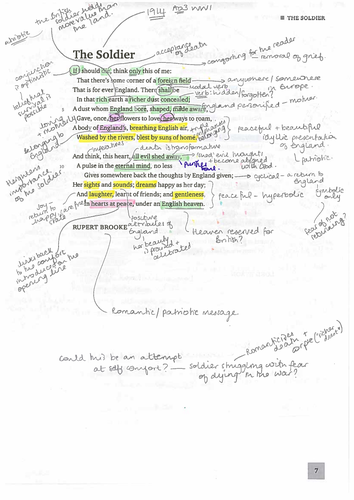 1914 pre WWI
THE SOLDIER
patriotic
the English
soldier holds
more value than
the land.
The Soldier
acceptance
of death
comforting for the reader
removal of grief
conjunction
optimistic
If I should die, think only this of me:
That there's some corner of a foreign field
That is for ever England. There shall be
In that rich earth a richer dust concealed;
A dust whom England bore, shaped, made aware,
Gave, once, her flowers to love, her ways to roam,
A body of England's, breathing English air,
Washed by the rivers, blest by suns of home.
And think, this heart, all evil shed away,
A pulse in the eternal mind, no less
Gives somewhere back the thoughts by England given;
Her sights and sounds; dreams happy as her day;
And laughter, learnt of friends; and gentleness,
In hearts at peace, under an English heaven.
RUPERT BROOKE
anywhere / somewhere
in Europe
modal verb
hidden
forgotten?
England personified - mother
peaceful + beautiful
idyllic presentation
of England
patriotic
belonging to
England
death is transformative
10
cyclical - a return to
England
peaceful - hyperbolic
symbolic
only
fear of not
returning?
positive
attributes of
England
its beauty
is praised +
celebrated
Heaven reserved for
British?
link back
to the comfort
introduced in the
opening line
Romantic / patriotic message
Romanticises
death +
corpse ("richer
dust")
could this be an attempt
at self comfort?
soldier struggling with fear
of dying in the war?
7